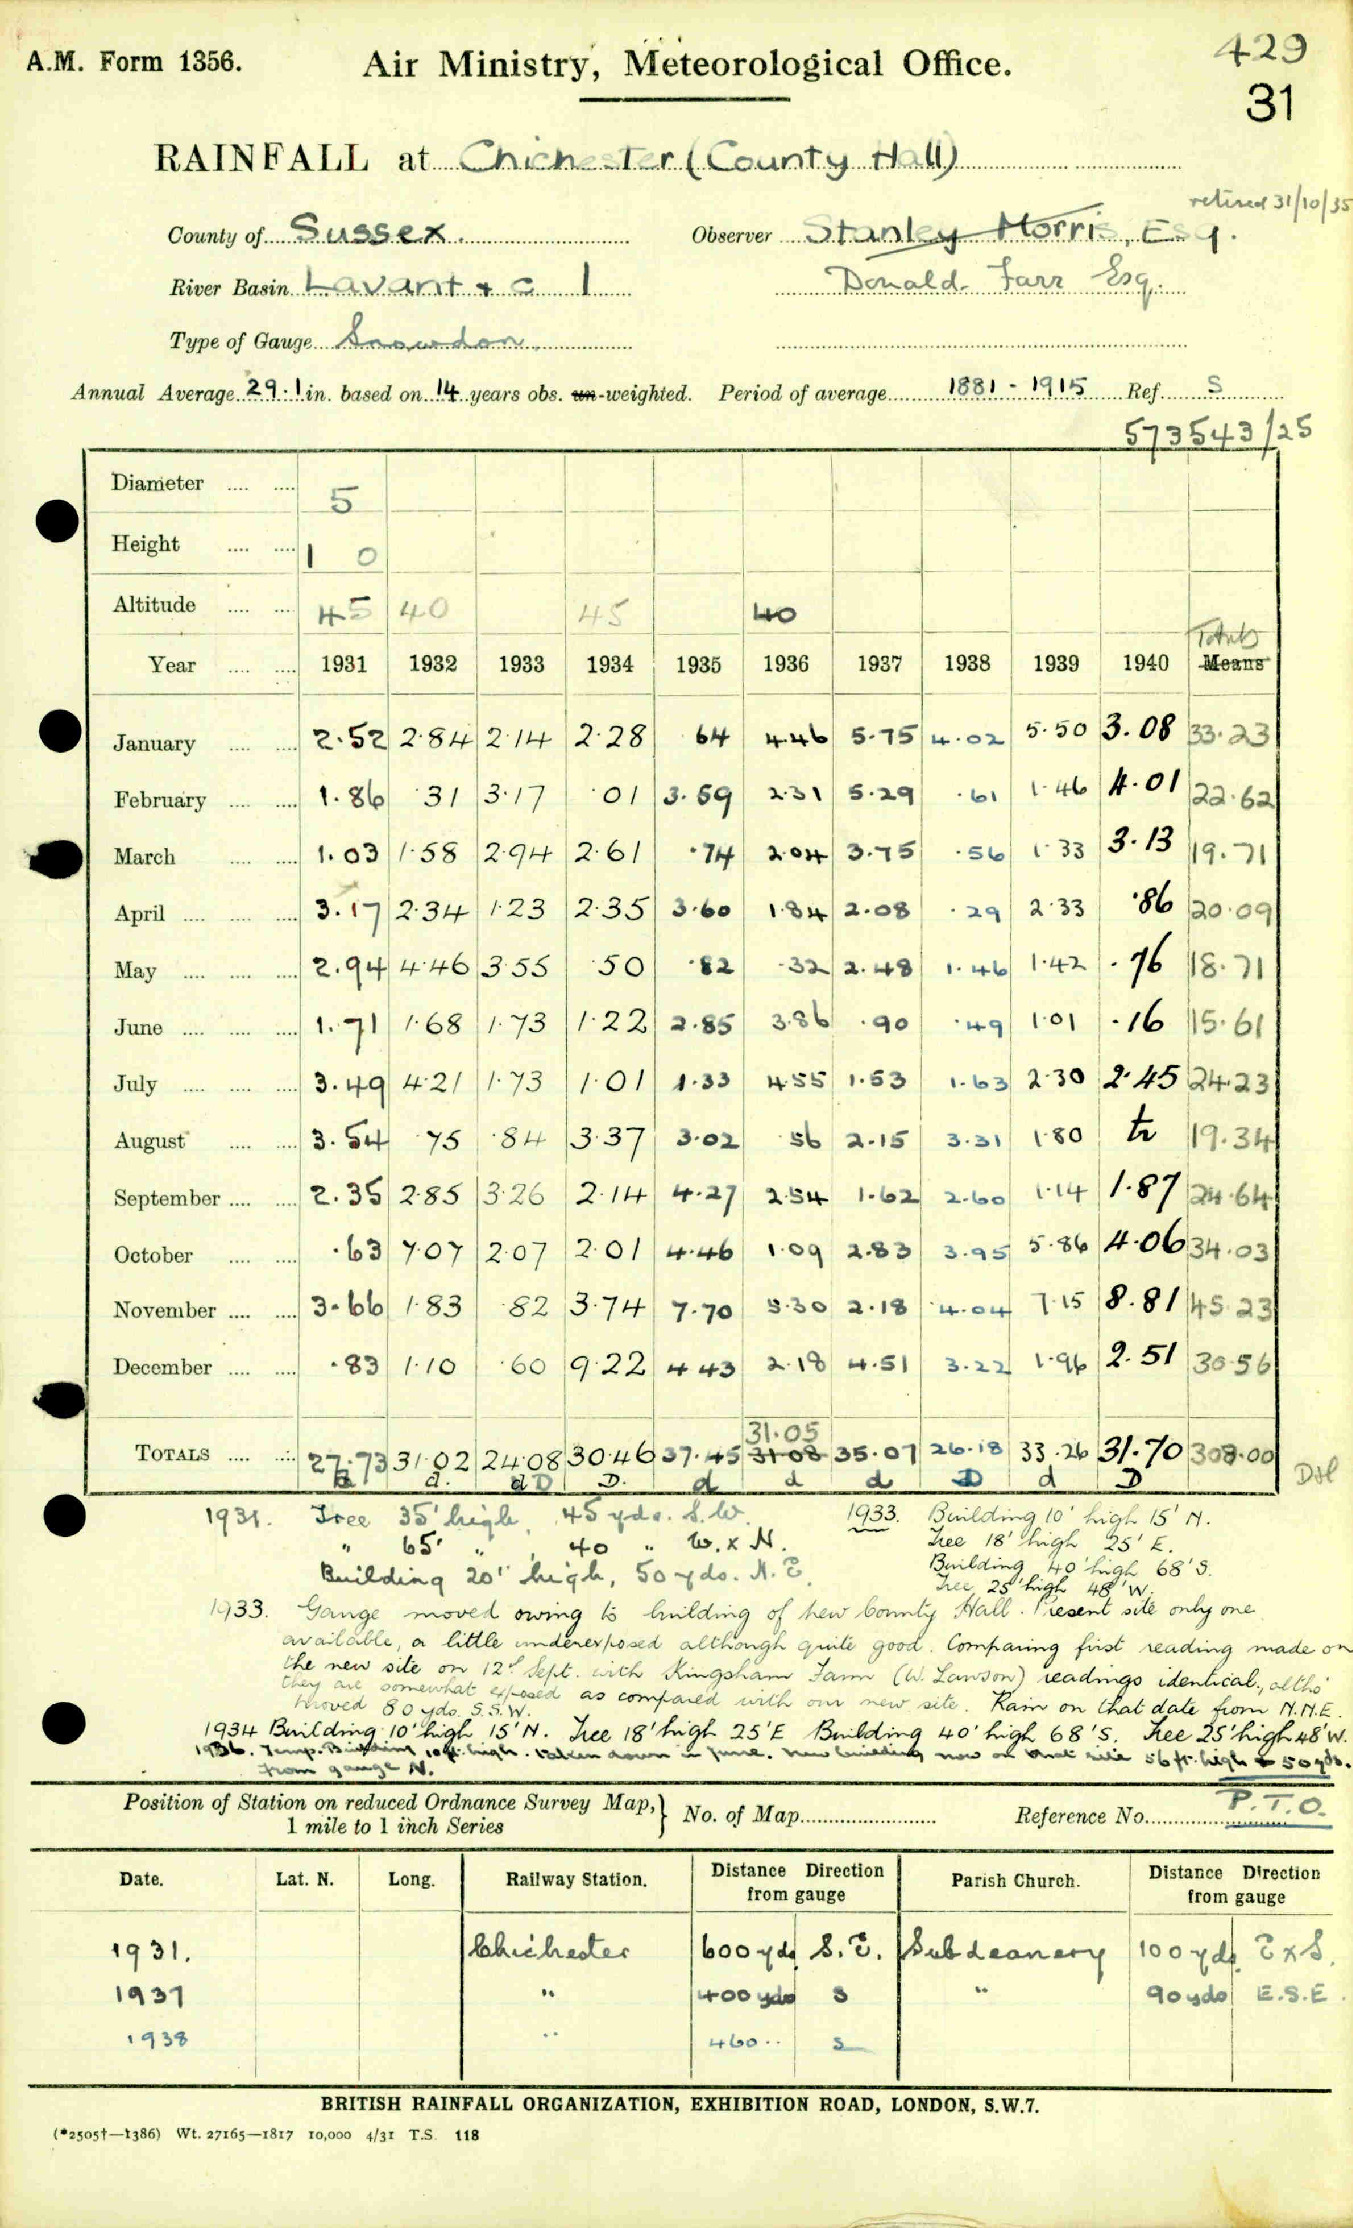 429
A.M. Form 1356. Air Ministry, Meteorological Office.
31
RAINFALL at Chichester (County Hall)
retired 31/10/35
County of Sussex. Observer Stanley Morris, Esq.
River Basin Lavant & C 1 Donald Farr Esq.
Type of Gauge Snowdon.
Annual Average 29.1 in. based on 14 years obs. un-weighted. Period of average 1881 - 1915 Ref. S
573543/25
Diameter .... .... 5
Height .... .... 1 0
Altitude .... .... 45 40 45 40
Totals
Year .... .... 1931 1932 1933 1934 1935 1936 1937 1938 1939 1940 Means
January .... .... 2.52 2.84 2.14 2.28 .64 4.46 5.75 4.02 5.50 3.08 33.23
February .... .... 1.86 .31 3.17 .01 3.59 2.31 5.29 .61 1.46 4.01 22.62
March .... .... 1.03 1.58 2.94 2.61 .74 2.04 3.75 .56 1.33 3.13 19.71
April .... .... .... 3.17 2.34 1.23 2.35 3.60 1.84 2.08 .29 2.33 .86 20.09
May .... .... .... 2.94 4.46 3.55 .50 .82 .32 2.48 1.46 1.42 .76 18.71
June .... .... .... 1.71 1.68 1.73 1.22 2.85 3.86 .90 .49 1.01 .16 15.61
July .... .... .... 3.49 4.21 1.73 1.01 1.33 4.55 1.53 1.63 2.30 2.45 24.23
August .... .... 3.54 .75 .84 3.37 3.02 .56 2.15 3.31 1.80 tr 19.34
September .... .... 2.35 2.85 3.26 2.14 4.27 2.54 1.62 2.60 1.14 1.87 24.64
October .... .... .63 7.07 2.07 2.01 4.46 1.09 2.83 3.95 5.86 4.06 34.03
November .... .... 3.66 1.83 .82 3.74 7.70 5.30 2.18 4.04 7.15 8.81 45.23
December .... .... .83 1.10 .60 9.22 4.43 2.18 4.51 3.22 1.96 2.51 30.56
31.05
TOTALS .... .... 27.73 31.02 24.08 30.46 37.45 31.08 35.07 26.18 33.26 31.70 308.00
d. d D D. d d d D d D
1931. Tree 35' high, 45 yds. S.W.
" 65' " , 40 " W. x N.
Building 20' high, 50 yds. N.E.
1933. Building 10' high 15' N.
Tree 18' high 25' E.
Building 40' high 68' S.
Tree 25' high 48' W.
1933. Gauge moved owing to building of new County Hall. Present site only one
available, a little underexposed although quite good. Comparing first reading made on
the new site on 12th Sept. with Kingsham Farm (W. Lawson) readings identical, altho'
they are somewhat exposed as compared with our new site. Rain on that date from N.N.E.
Moved 80 yds. S.S.W.
1934 Building 10' high 15' N. Tree 18' high 25' E Building 40' high 68' S. Tree 25' high 48' W.
1936. Temp. Building 10 ft. high. taken down in June. New building now on that site 56 ft. high 50 yds.
from gauge N.
P.T.O.
Position of Station on reduced Ordnance Survey Map, 1 mile to 1 inch Series } No. of Map Reference No.
Date. Lat. N. Long. Railway Station. Distance Direction from gauge Parish Church. Distance Direction from gauge
1931. Chichester 600 yds. S.E. Subdeanery 100 yds. E x S.
1937 " 400 yds S " 90 yds E.S.E.
1938 " 460 .. S
BRITISH RAINFALL ORGANIZATION, EXHIBITION ROAD, LONDON, S.W.7.
(*2505†—1386) Wt. 27165—1817 10,000 4/31 T.S. 118